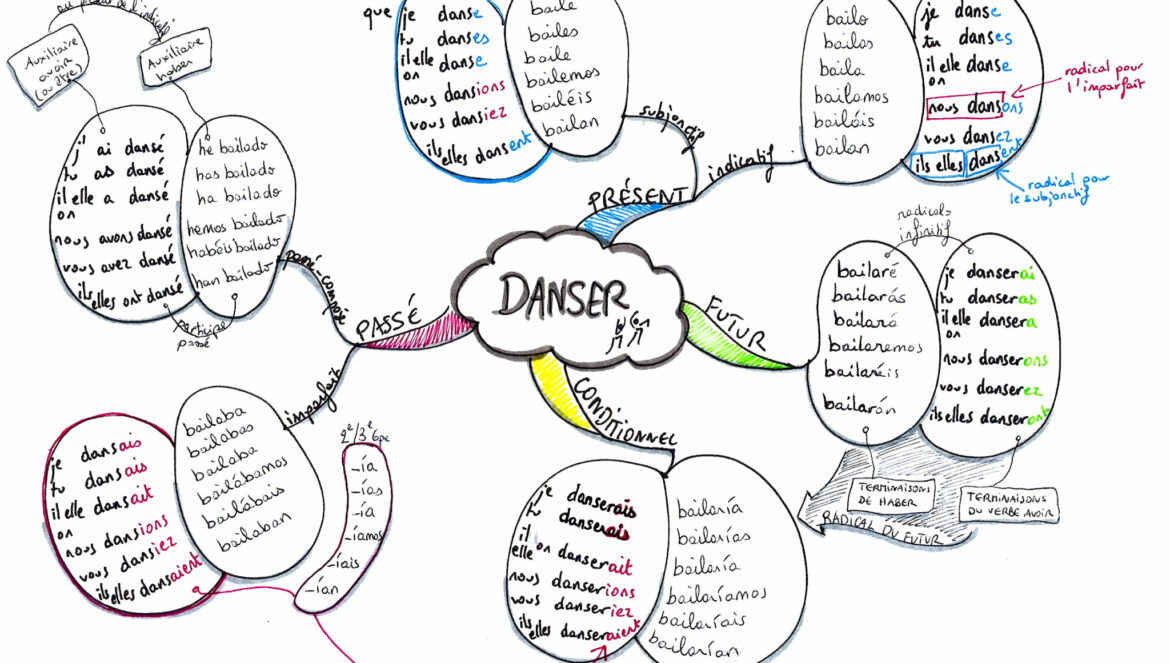 DANSER
PRÉSENT
subjonctif
que je danse
tu danses
il elle danse
on
nous dansions
vous dansiez
ils elles dansent
baile
bailes
baile
bailemos
bailéis
bailan
indicatif
bailo
bailas
baila
bailamos
bailáis
bailan
je danse
tu danses
il elle danse
on
nous dansons
vous dansez
ils elles dansent
radical pour
l'imparfait
radical pour
le subjonctif
FUTUR
radicals
infinitif
bailaré
bailarás
bailará
bailaremos
bailaréis
bailarán
je danserai
tu danseras
il elle dansera
on
nous danserons
vous danserez
ils elles danseront
TERMINAISONS
DE HABER
TERMINAISONS
DU VERBE AVOIR
RADICAL DU FUTUR
CONDITIONNEL
je danserais
tu danserais
il on danserait
elle
nous danserions
vous danseriez
ils elles danseraient
bailaría
bailarías
bailaría
bailaríamos
bailaríais
bailarían
PASSÉ
passé-composé
Auxiliaire
avoir
(ou être)
Auxiliaire
haber
j' ai dansé
tu as dansé
il elle a dansé
on
nous avons dansé
vous avez dansé
ils elles ont dansé
he bailado
has bailado
ha bailado
hemos bailado
habéis bailado
han bailado
participe
passé
imparfait
je dansais
tu dansais
il elle dansait
on
nous dansions
vous dansiez
ils elles dansaient
bailaba
bailabas
bailaba
bailábamos
bailábais
bailaban
2e/3e Gpe
-ía
-ías
-ía
-íamos
-íais
-ían